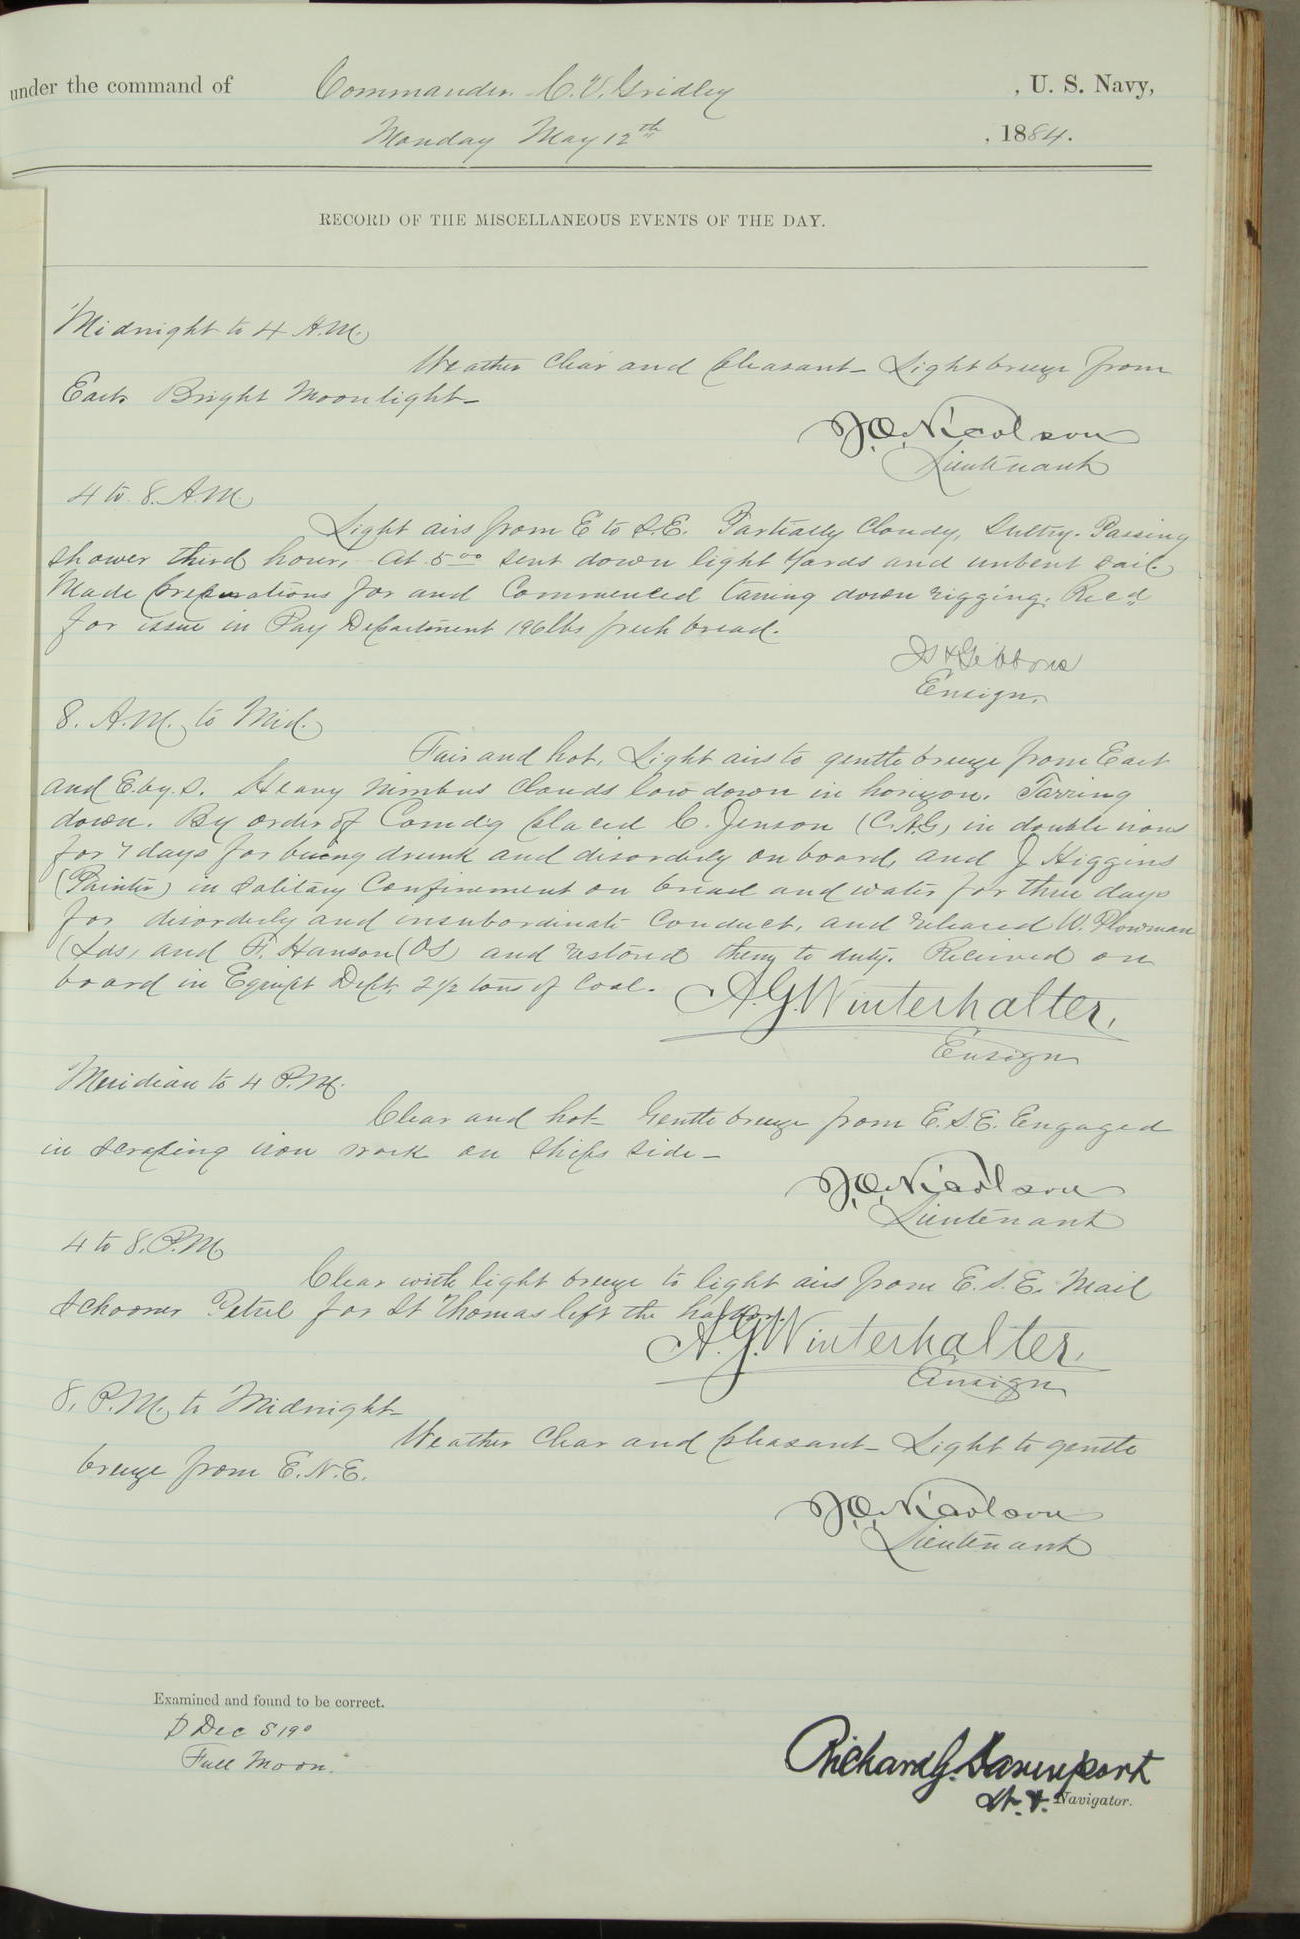 under the command of Commander C.V. Gridley , U. S. Navy,
Monday May 12th , 1884.
RECORD OF THE MISCELLANEOUS EVENTS OF THE DAY.
Midnight to 4 A.M.
Weather clear and pleasant - Light breeze from
East. Bright Moonlight -
J.O. Nicolson
Lieutenant
4 to 8. A.M.
Light airs from E to S.E. Partially cloudy, Sultry. Passing
shower third hour. At 5.00 sent down light yards and unbent sail.
Made preparations for and commenced tarring down rigging. Recd
for issue in Pay Department 196 lbs fresh bread.
Gibbons
Ensign.
8. A.M. to Mid.
Fair and hot. Light airs to gentle breeze from East
and E.by.S. Heavy nimbus clouds low down in horizon. Tarring
down. By order of Comdg placed C. Jenson (C.A.G) in double irons
for 7 days for being drunk and disorderly on board, and J Higgins
(Painter) in solitary confinement on bread and water for three days
for disorderly and insubordinate conduct, and released W. Plowman
(Lds) and F. Hanson (OS) and restored them to duty. Received on
board in Equipt Dept. 2 1/2 tons of coal.
A.G. Winterhalter,
Ensign
Meridian to 4 P.M.
Clear and hot - Gentle breeze from E.S.E. Engaged
in scraping iron work on ships side -
J.O. Nicolson
Lieutenant
4 to 8. P.M.
Clear with light breeze to light airs from E.S.E. Mail
schooner Petrel for St Thomas left the harbor.
A.G. Winterhalter,
Ensign
8. P.M. to Midnight -
Weather clear and pleasant - Light to gentle
breeze from E.N.E.
J.O. Nicolson
Lieutenant
Examined and found to be correct.
D Dec S 19°
Full Moon.
Richard G. Davenport
Lt. & Navigator.